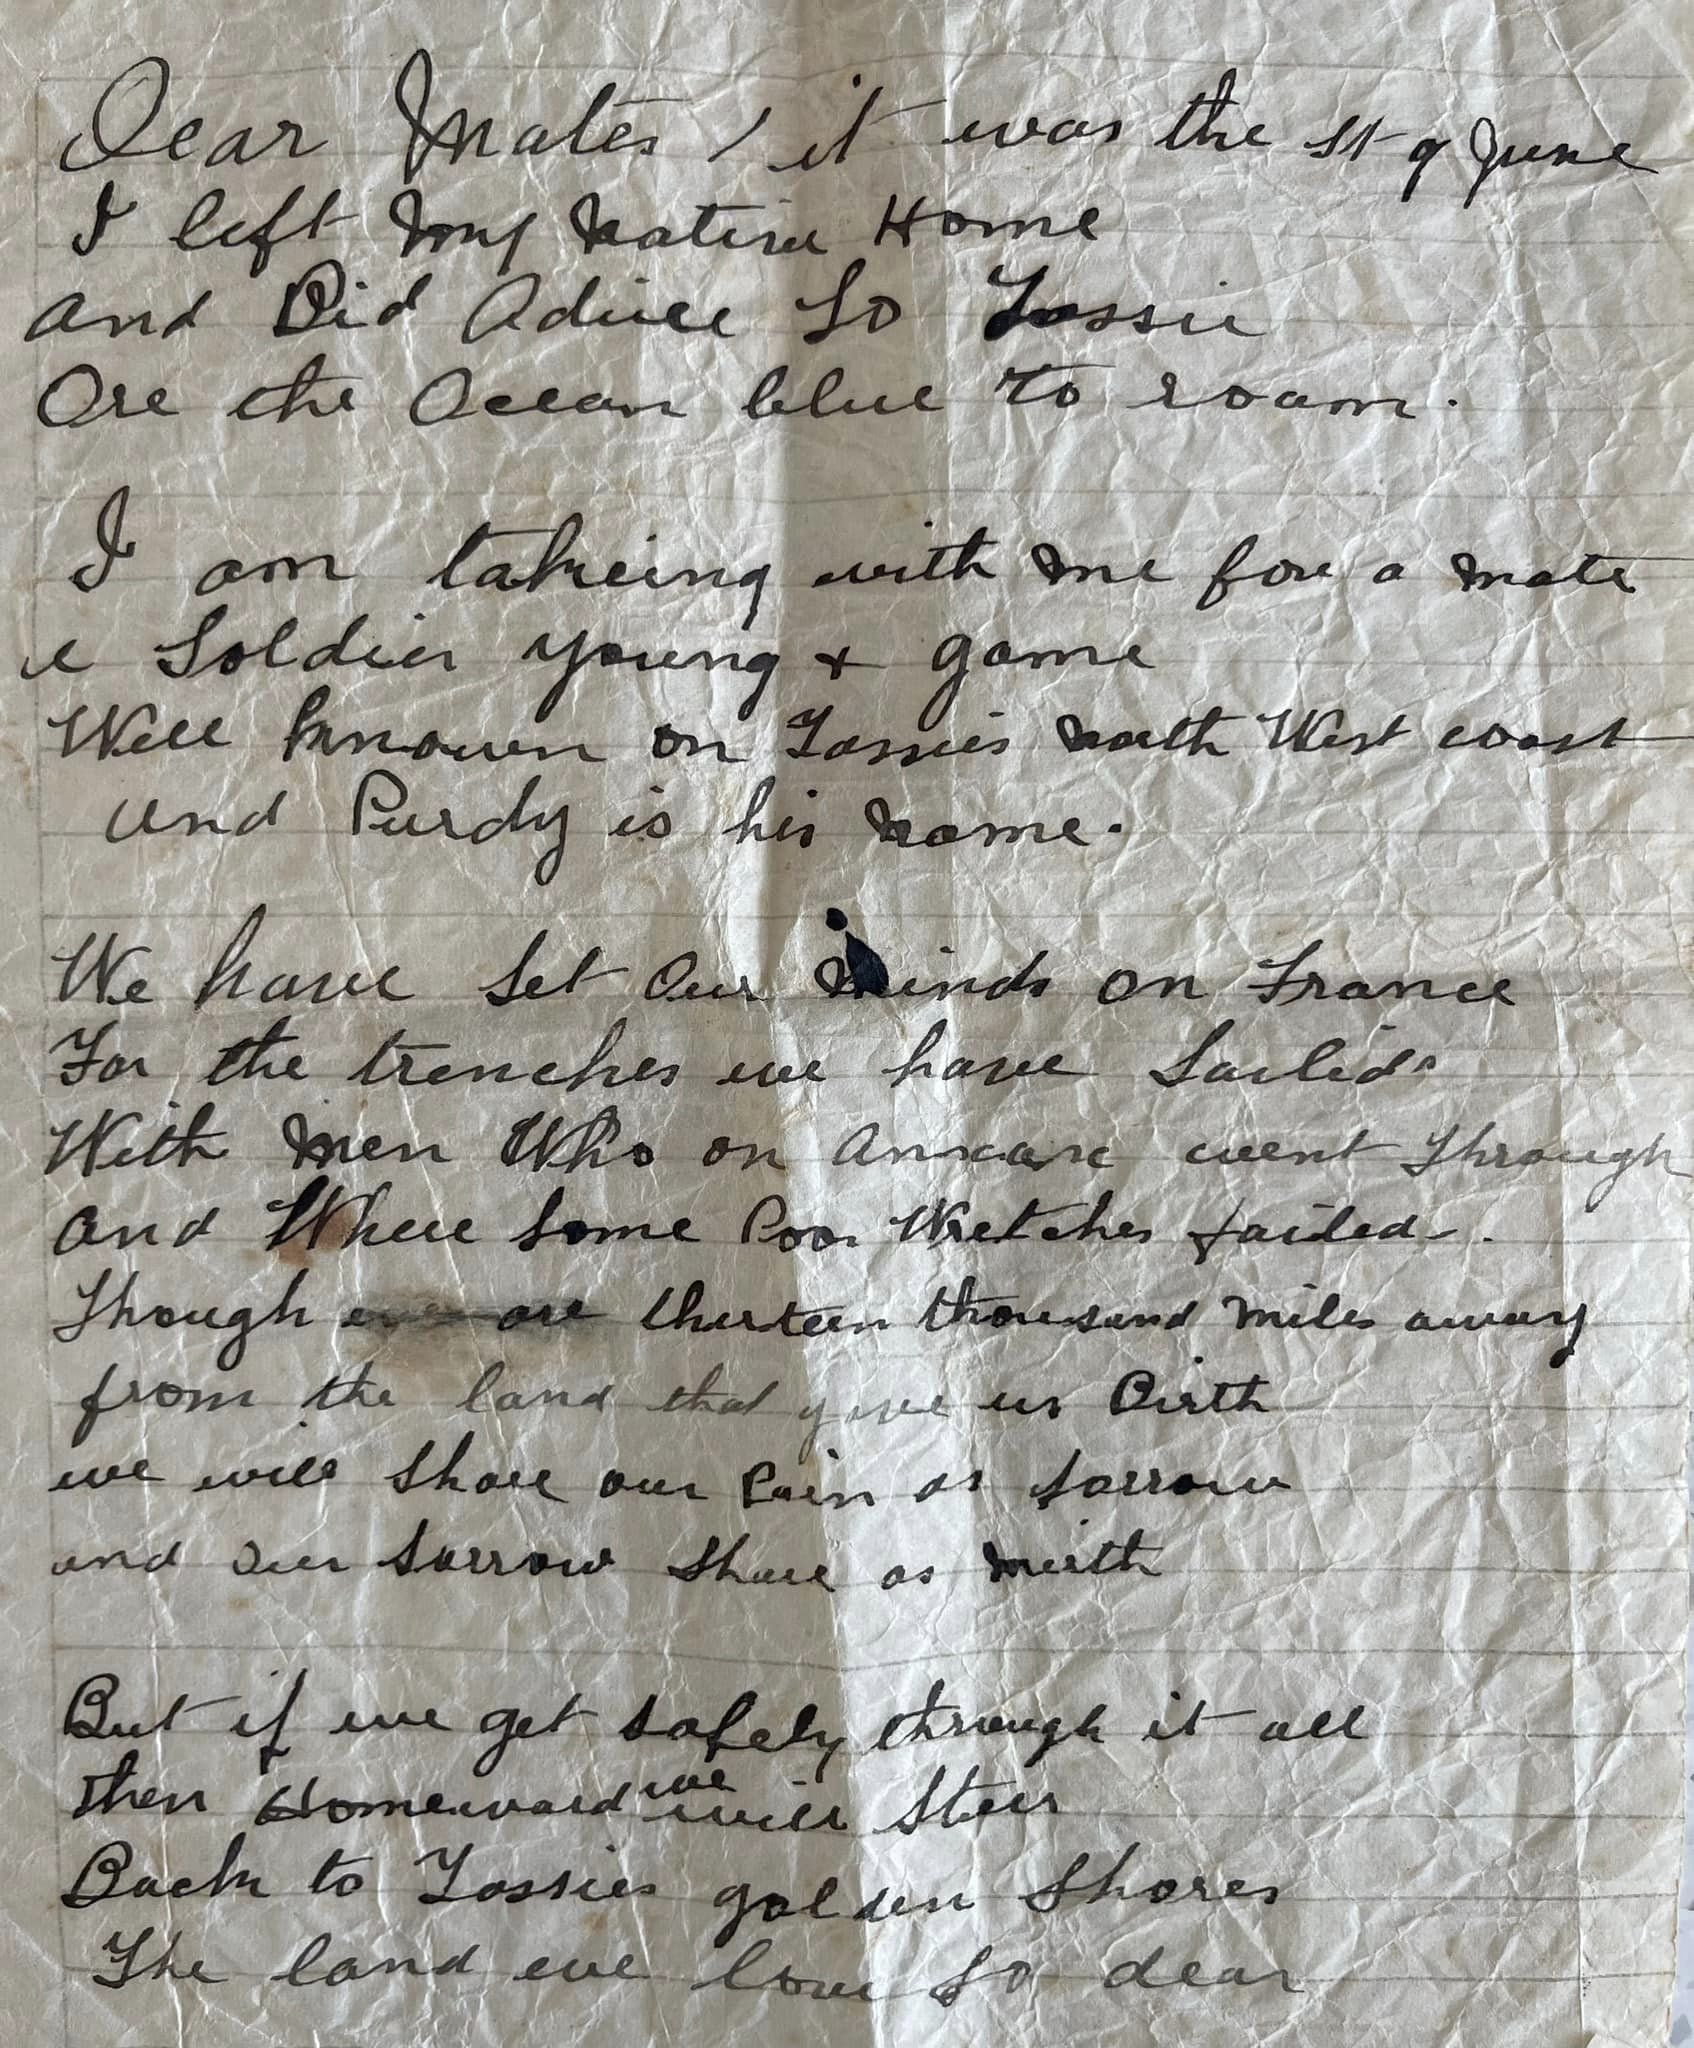 Dear Mates, it was the 1st of June
I left my native Home
and Did Adiue To Tassie
Ore the Ocean blue to roam.
I am takeing with me for a mate
a Soldier young + game
Well known on Tassies North West coast
and Purdy is his name.
We have Set Our Minds on France
For the trenches we have Sailed
With Men Who on went through
and Where Some Poor Wretches failed.
Though are thirteen thousand miles away
from the land that gave us Birth
we will Share our Pain as Sorrow
and our Sorrow Share as Mirth
But if we get Safely through it all
then Homeward we will Steer
Back to Tassies golden Shores
The land we love So dear